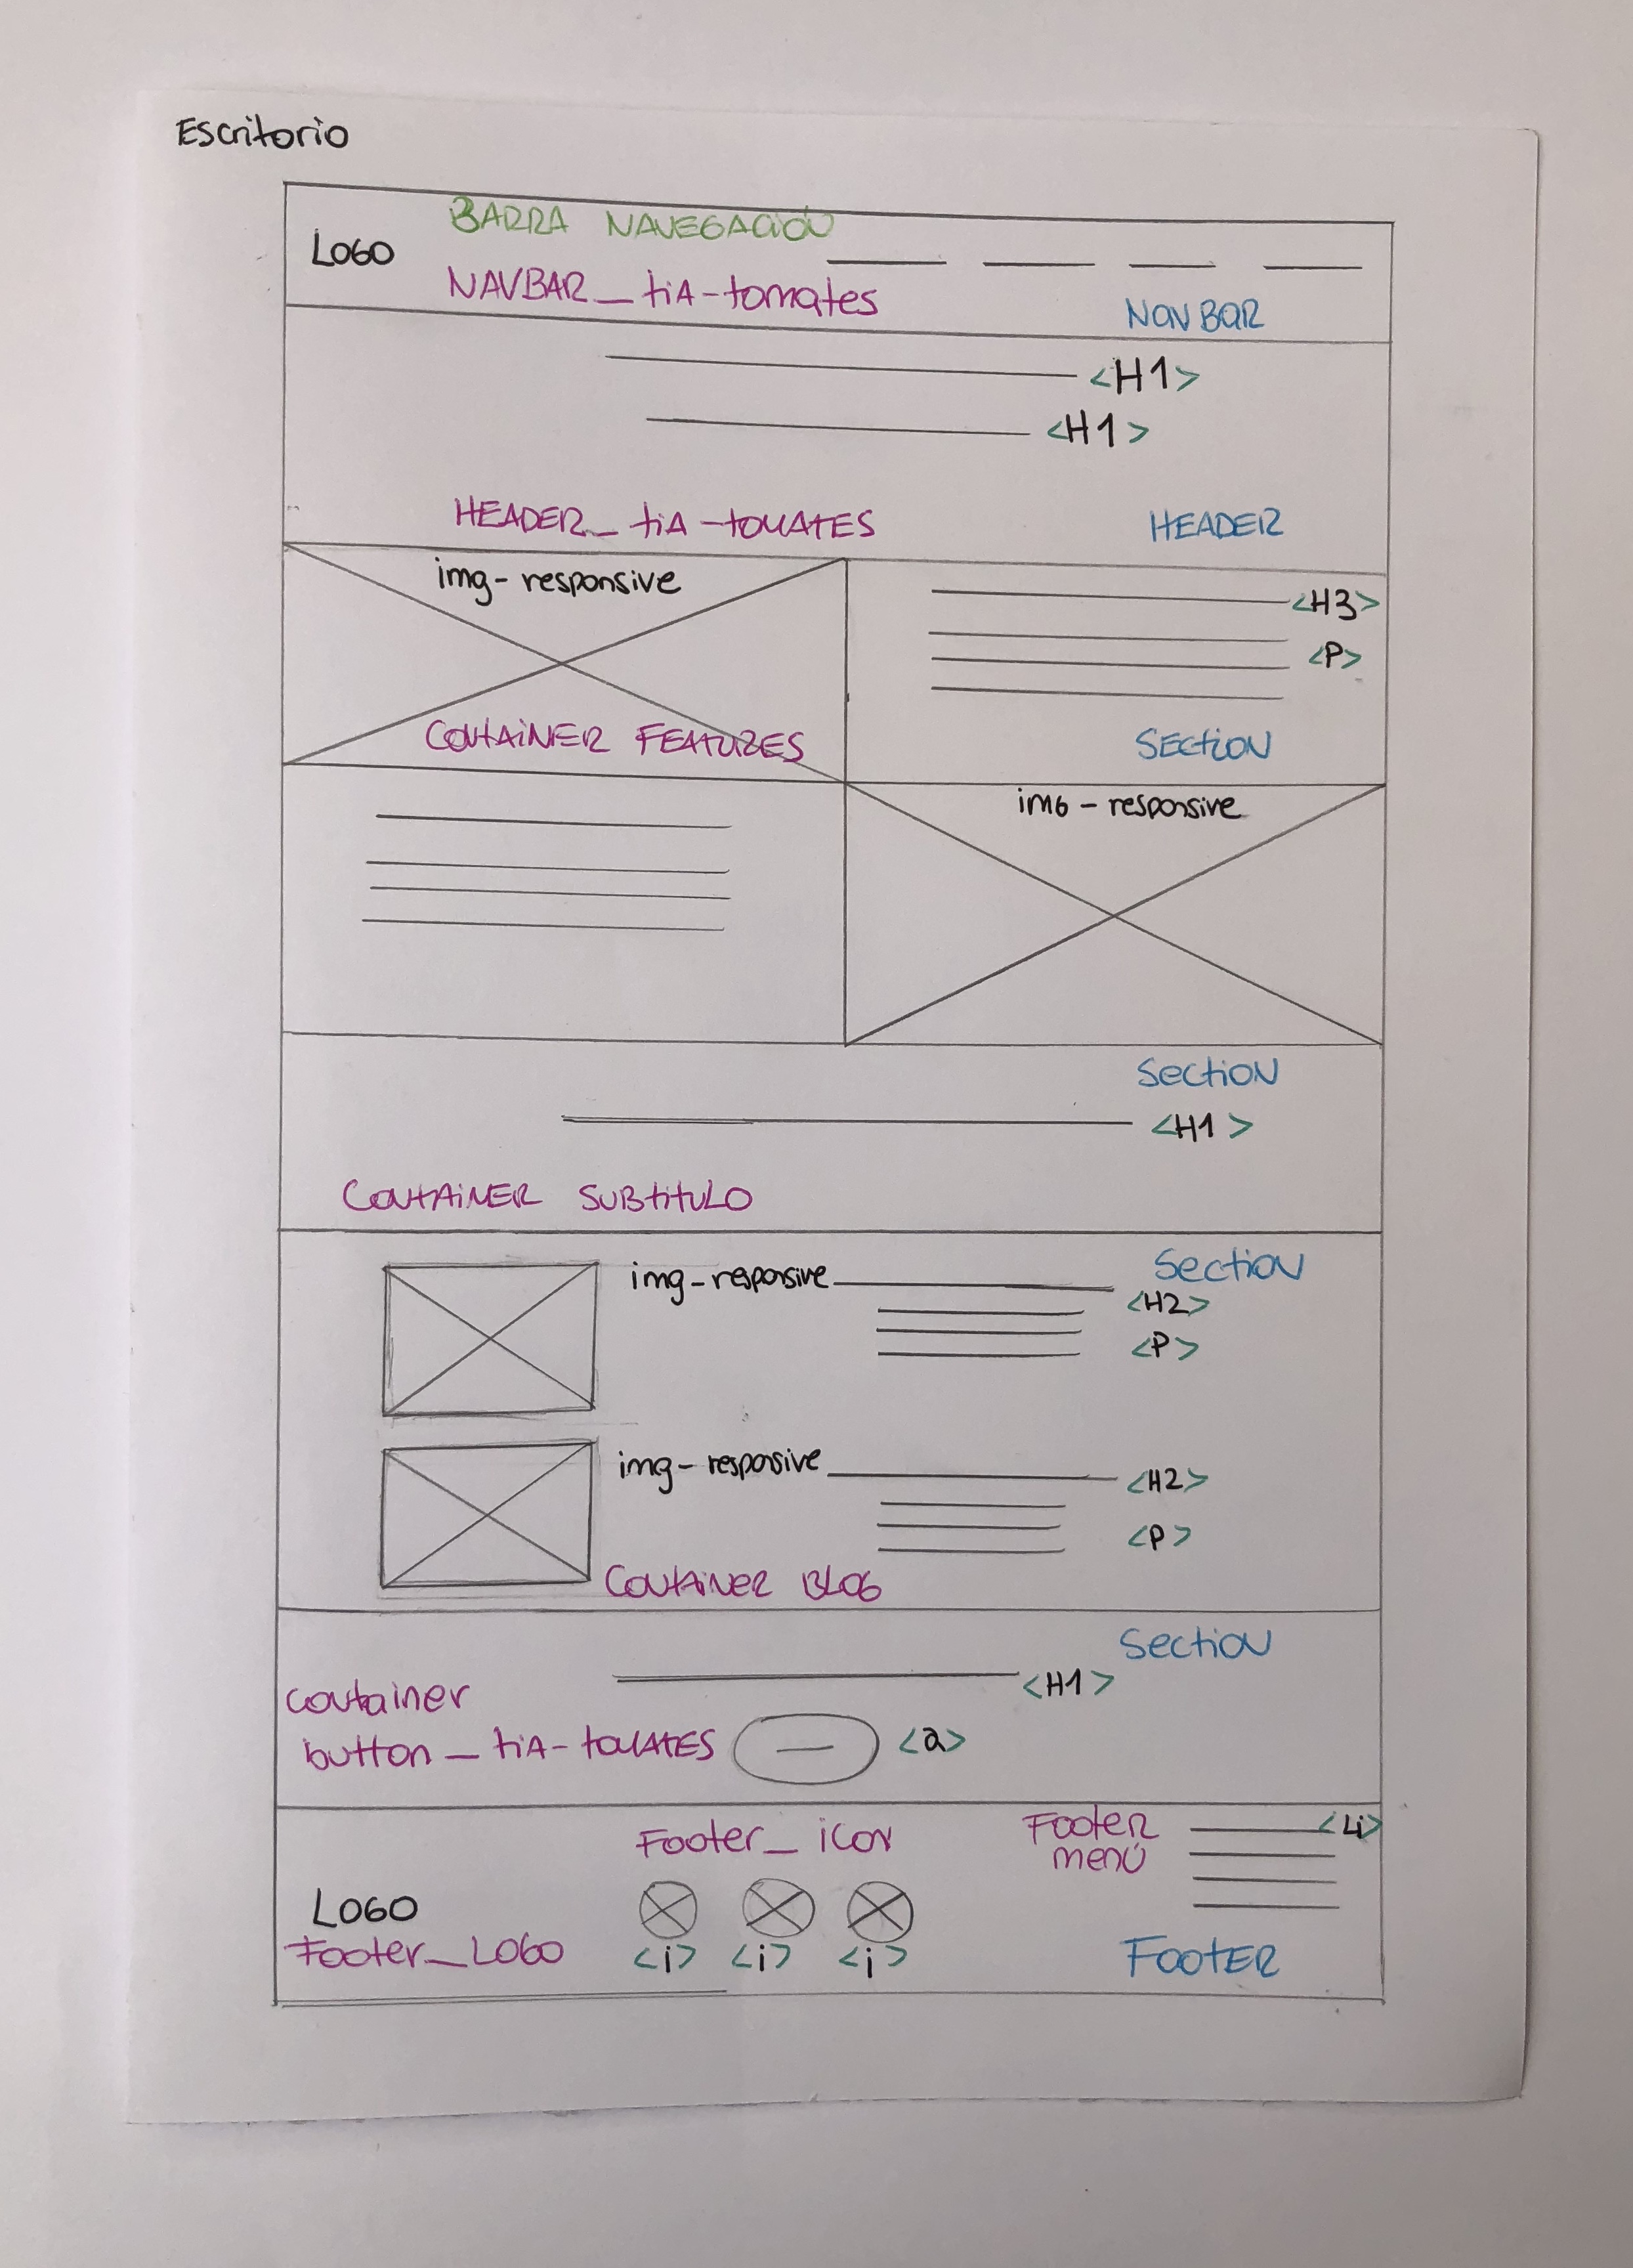 Escritorio
BARRA NAVEGACIÓN
LOGO
NAVBAR_tiA-tomates
NAVBAR
<H1>
<H1>
HEADER_tiA-toMATES
HEADER
img-responsive
<H3>
<P>
CONTAINER FEATURES
SECTION
imG-responsive
SECTION
<H1>
CONTAINER SUBTITULO
SECTION
img-responsive
<H2>
<P>
img-responsive
<H2>
<P>
CONTAINER BLOG
SECTION
<H1>
container
button_tiA-toMATES
<a>
Footer_icon
Footer
menú
<Li>
LOGO
Footer_LOGO
<i> <i> <i>
FOOTER